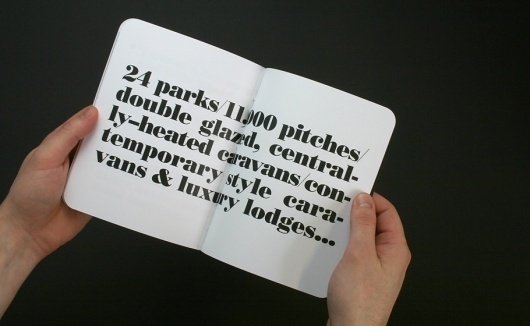 24 parks/11,000 pitches/
double glazed, central-
ly-heated caravans/con-
temporary style cara-
vans & luxury lodges...